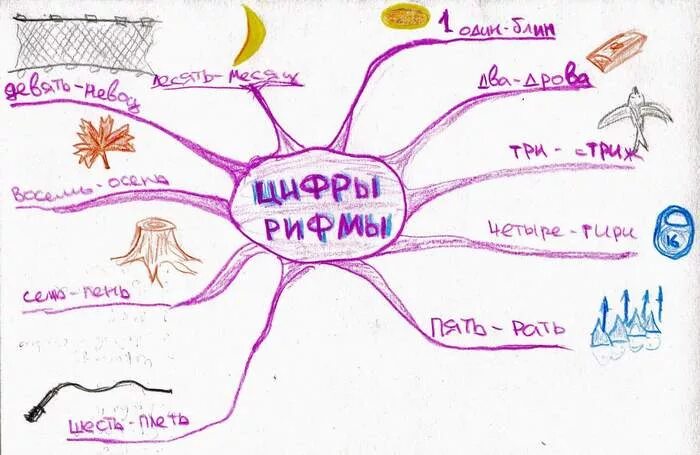 ЦИФРЫ
РИФМЫ
1 один-блин
два-дрова
три-стриж
четыре-гири
16
пять-рать
шесть-плеть
семь-пень
восемь-осень
девять-невод
десять-месяц